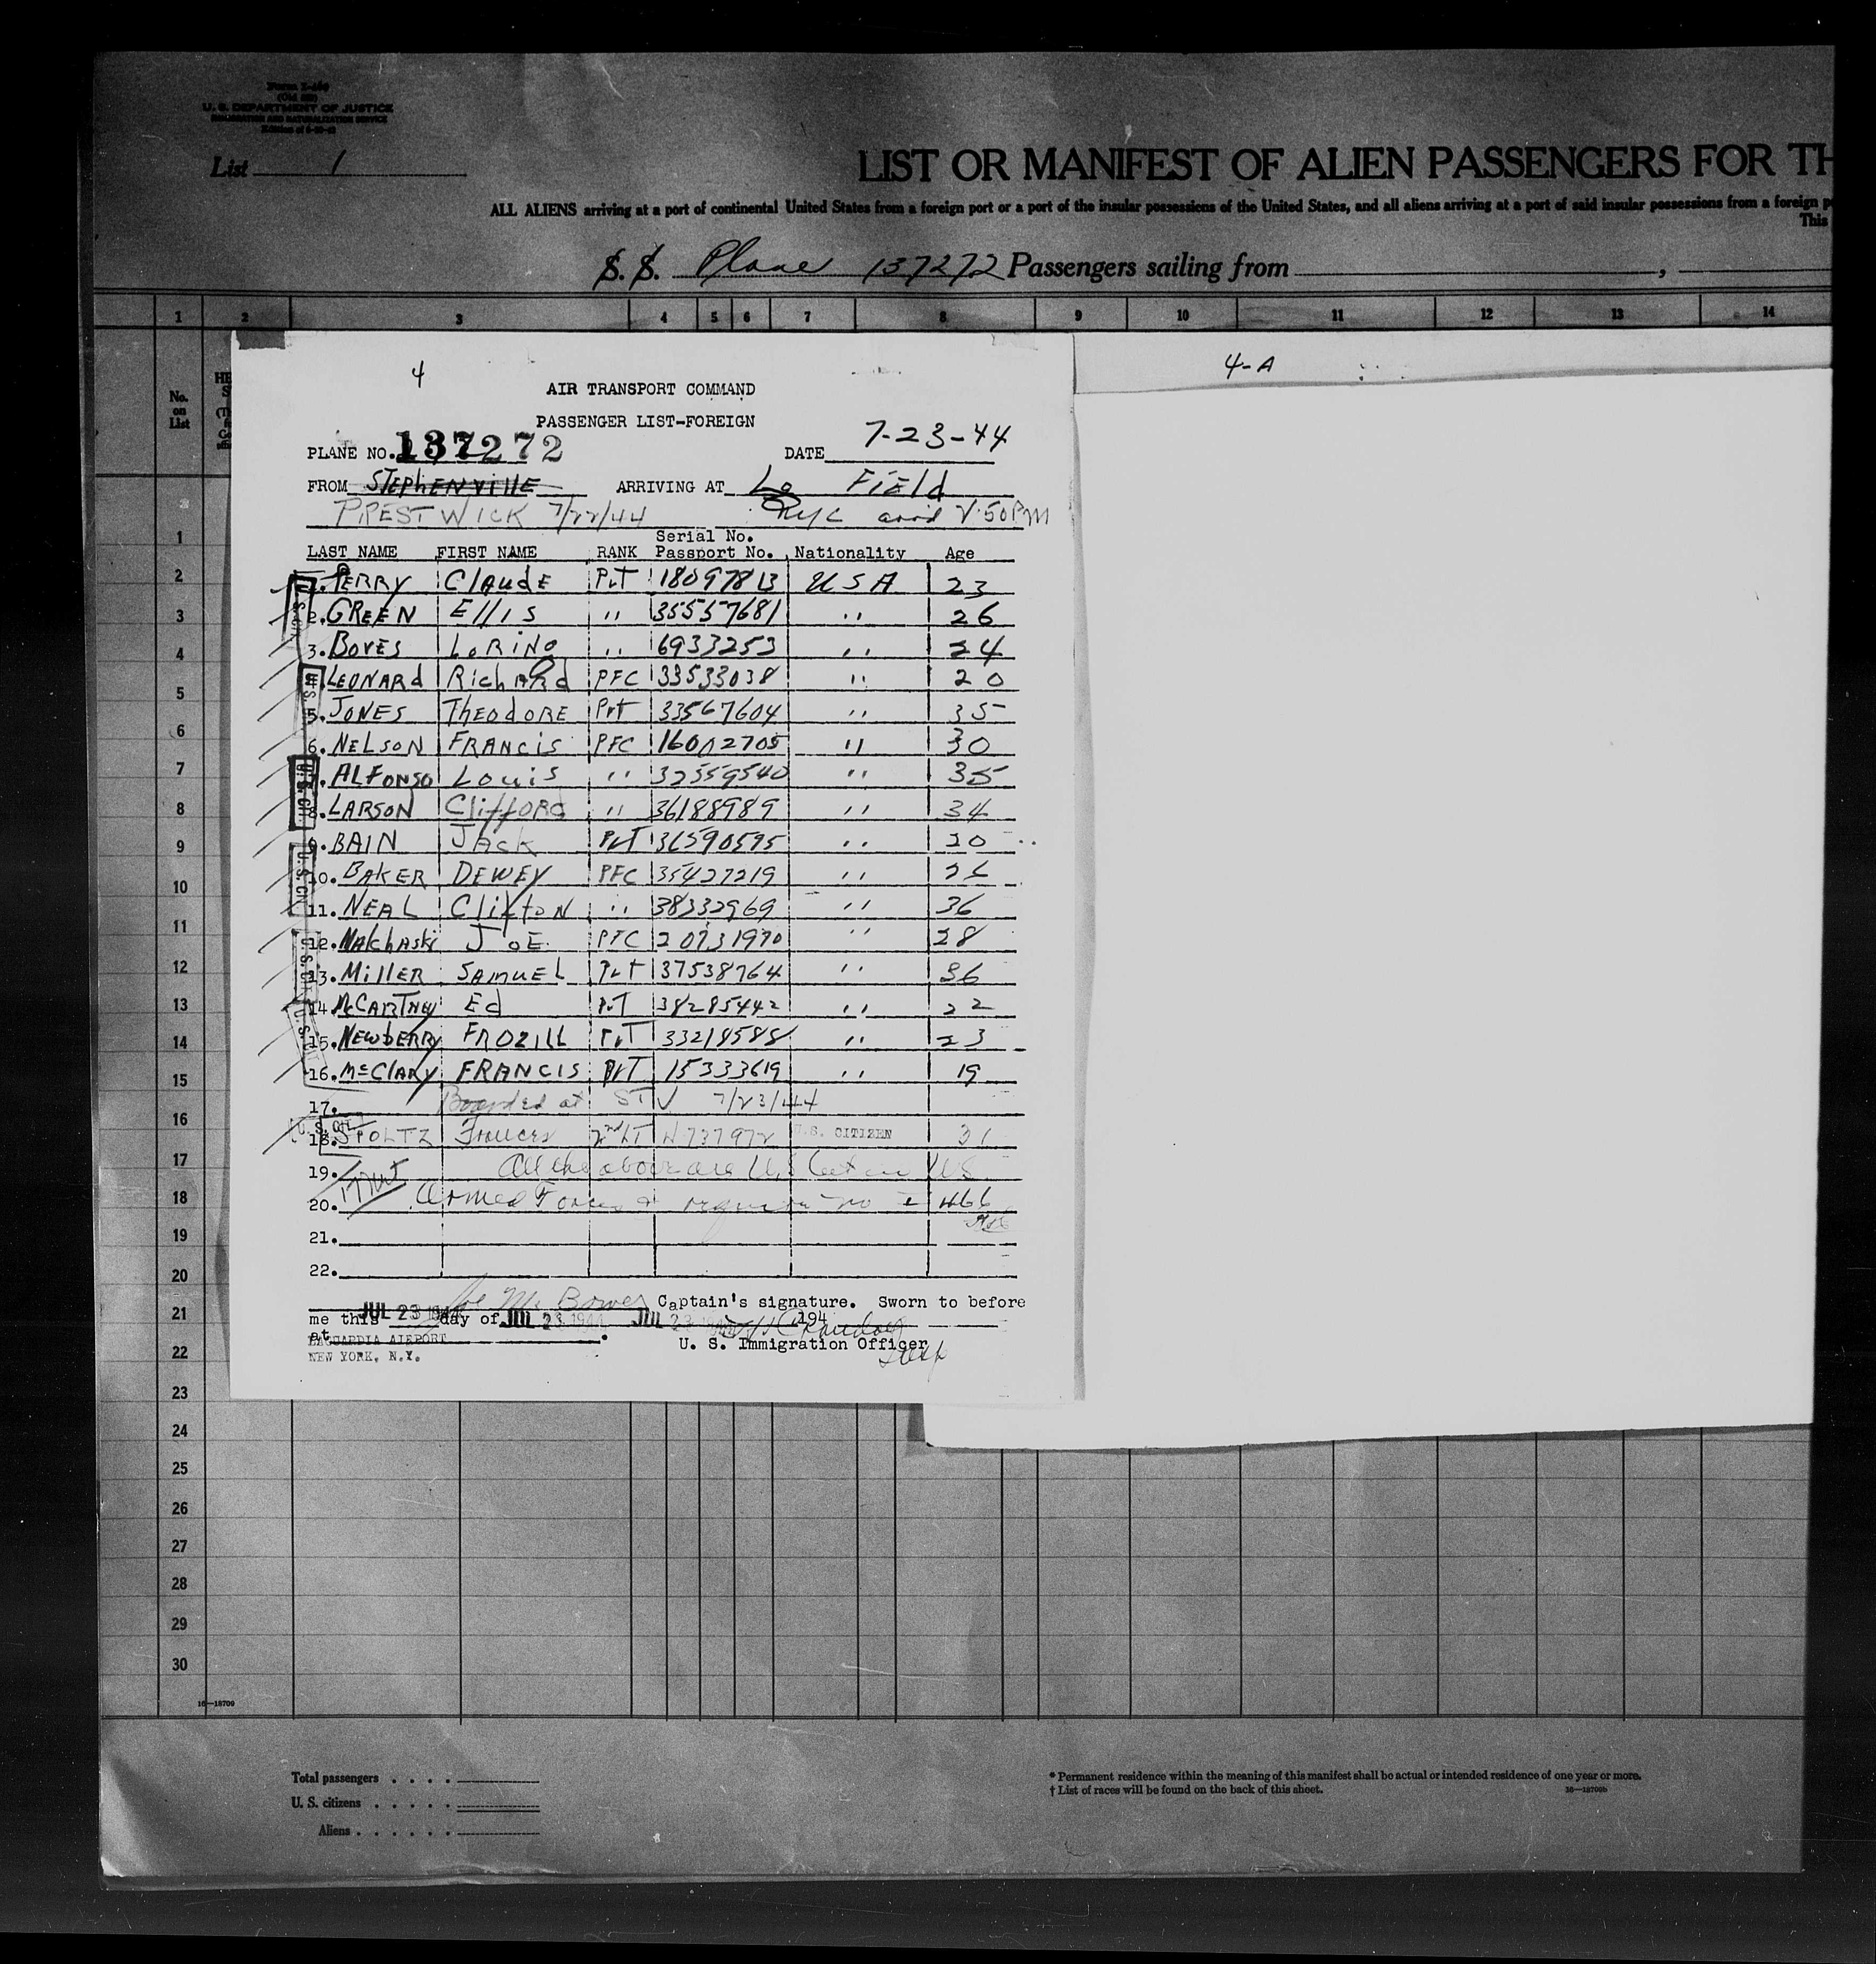 Form I-466
(Old 632)
U. S. DEPARTMENT OF JUSTICE
IMMIGRATION AND NATURALIZATION SERVICE
List 1
LIST OR MANIFEST OF ALIEN PASSENGERS FOR TH
ALL ALIENS arriving at a port of continental United States from a foreign port or a port of the insular possessions of the United States, and all aliens arriving at a port of said insular possessions from a foreign p
This
S. S. Plane 137272 Passengers sailing from ,
1 2 3 4 5 6 7 8 9 10 11 12 13 14
No. on List
HE
4
4-A
AIR TRANSPORT COMMAND
PASSENGER LIST-FOREIGN
PLANE NO. 137272 DATE 7-23-44
FROM STEPHENVILLE ARRIVING AT La Field
PRESTWICK 7/22/44 50 PM
LAST NAME FIRST NAME RANK Serial No. Passport No. Nationality Age
1. PERRY Claude Pvt 18097813 USA 23
2. GREEN Ellis " 35557681 " 26
3. BOVES LORING " 6933253 " 24
4. LEONARD Richard PFC 33533038 " 20
5. JONES THEODORE Pvt 33567604 " 35
6. NELSON FRANCIS PFC 16002705 " 30
7. ALFONSO Louis " 32359540 " 35
8. LARSON Clifford " 36188989 " 34
9. BAIN Jack Pvt 36590595 " 20
10. BAKER DEWEY PFC 35427219 " 26
11. NEAL Clifton " 38332969 " 36
12. Malchaski JOE PFC 20731970 " 28
13. MILLER SAMUEL Pvt 37538764 " 36
14. McCARTNEY Ed Pvt 38285442 " 22
15. NEWBERRY FROZILL Pvt 33218588 " 23
16. McClary FRANCIS Pvt 15333619 " 19
17. Boarded at STV 7/23/44
18. STOLTZ Frances 2nd LT N737972 U.S. CITIZEN 31
19. All the above are U.S.
20. Armed Forces no I 466
21.
22.
Joe M. Bower Captain's signature. Sworn to before
me this JUL 23 1944 day of JUL 23 1944 JUL 23 1944 194
at LAGUARDIA AIRPORT
NEW YORK, N.Y.
U. S. Immigration Officer
1
2
3
4
5
6
7
8
9
10
11
12
13
14
15
16
17
18
19
20
21
22
23
24
25
26
27
28
29
30
16—18709
Total passengers . . . .
U. S. citizens . . . . .
Aliens . . . . . .
* Permanent residence within the meaning of this manifest shall be actual or intended residence of one year or more.
† List of races will be found on the back of this sheet. 16—18709b